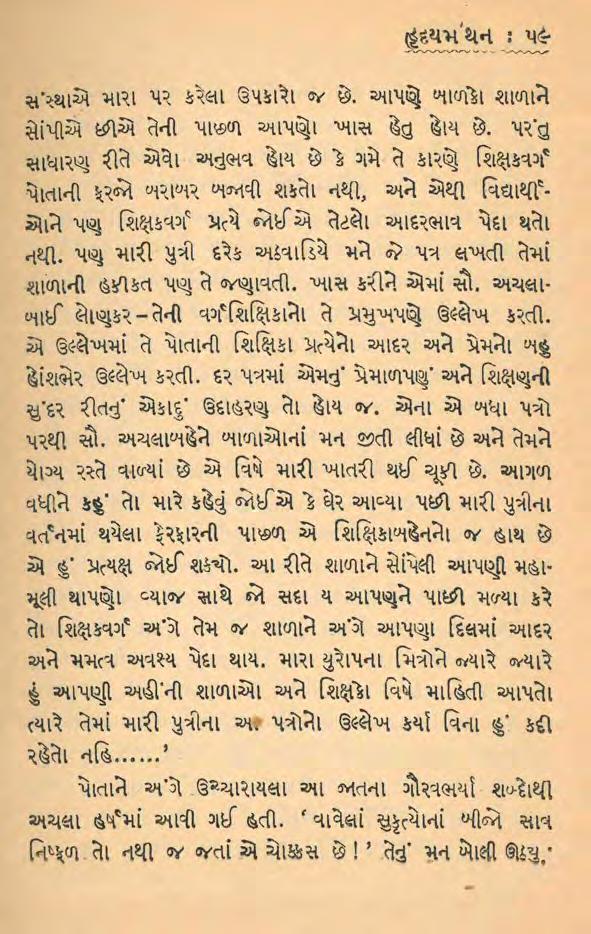 હૃદયમંથન : ૫૯
સંસ્થાએ મારા પર કરેલા ઉપકારો જ છે. આપણે બાળકો શાળાને
સોંપીએ છીએ તેની પાછળ આપણો ખાસ હેતુ હોય છે. પરંતુ
સાધારણ રીતે એવો અનુભવ હોય છે કે ગમે તે કારણે શિક્ષકવર્ગ
પોતાની ફરજો બરાબર બજાવી શકતો નથી, અને એથી વિદ્યાર્થી-
ઓને પણ શિક્ષકવર્ગ પ્રત્યે જોઈએ તેટલો આદરભાવ પેદા થતો
નથી. પણ મારી પુત્રી દરેક અઠવાડિયે મને જે પત્ર લખતી તેમાં
શાળાની હકીકત પણ તે જણાવતી. ખાસ કરીને એમાં સૌ. અચલા-
બાઈ લોણકર – તેની વર્ગશિક્ષિકાનો તે પ્રમુખપણે ઉલ્લેખ કરતી.
એ ઉલ્લેખમાં તે પોતાની શિક્ષિકા પ્રત્યેનો આદર અને પ્રેમનો બહુ
હોંશભેર ઉલ્લેખ કરતી. દર પત્રમાં એમનું પ્રેમાળપણું અને શિક્ષણની
સુંદર રીતનું એકાદું ઉદાહરણ તો હોય જ. એના એ બધા પત્રો
પરથી સૌ. અચલાબહેને બાળાઓનાં મન જીતી લીધાં છે અને તેમને
યોગ્ય રસ્તે વાળ્યાં છે એ વિષે મારી ખાતરી થઈ ચૂકી છે. આગળ
વધીને કહું તો મારે કહેવું જોઈએ કે ઘેર આવ્યા પછી મારી પુત્રીના
વર્તનમાં થયેલા ફેરફારની પાછળ એ શિક્ષિકાબહેનનો જ હાથ છે
એ હું પ્રત્યક્ષ જોઈ શક્યો. આ રીતે શાળાને સોંપેલી આપણી મહા-
મૂલી થાપણો વ્યાજ સાથે જો સદા ય આપણને પાછી મળ્યા કરે
તો શિક્ષકવર્ગ અંગે તેમ જ શાળાને અંગે આપણા દિલમાં આદર
અને મમત્વ અવશ્ય પેદા થાય. મારા યુરોપના મિત્રોને જ્યારે જ્યારે
હું આપણી અહીંની શાળાઓ અને શિક્ષકો વિષે માહિતી આપતો
ત્યારે તેમાં મારી પુત્રીના આ પત્રોનો ઉલ્લેખ કર્યા વિના હું કદી
રહેતો નહિ......'
પોતાને અંગે ઉચ્ચારાયલા આ જાતના ગૌરવભર્યા શબ્દોથી
અચલા હર્ષમાં આવી ગઈ હતી. ' વાવેલાં સુકૃત્યોનાં બીજો સાવ
નિષ્ફળ તો નથી જ જતાં એ ચોક્કસ છે ! ' તેનું મન બોલી ઊઠયું.